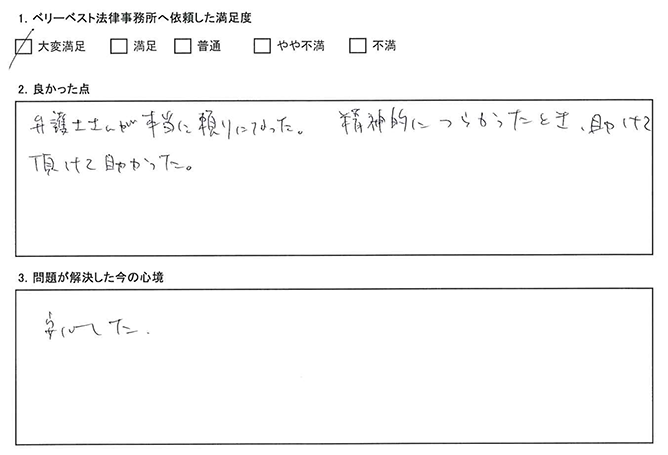 1. ベリーベスト法律事務所へ依頼した満足度
大変満足 満足 普通 やや不満 不満
2. 良かった点
弁護士さんが本当に頼りになった。 精神的につらかったとき、助けて
頂けて助かった。
3. 問題が解決した今の心境
安心した.